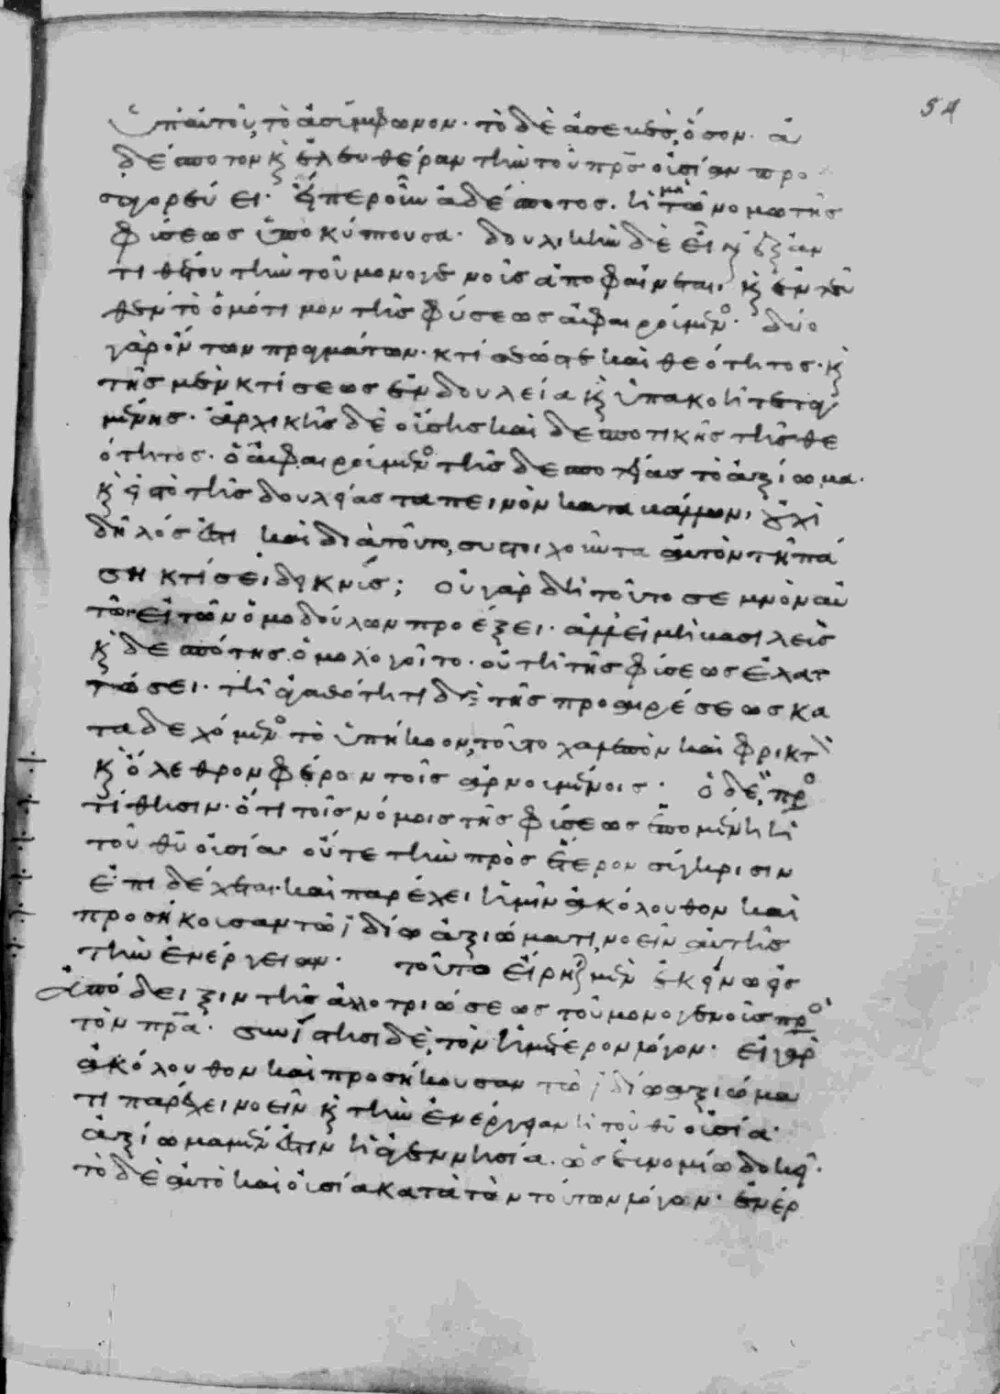 54
ὑπ' αὐτοῦ, τὸ ἀσύμφωνον· τὸ δὲ ἀσεβὲς, ὅσον· ἀ
δέσποτον κ ἐλευθέραν τὴν τοῦ πρς οὐσίαν προ
σαγορεύει·
φύσεως ὑποκύπτουσα· δουλικὴν δὲ
τι θέου τὴν τοῦ μονογενοῦς ἀποφαίνεται,
θεν τὸ ὁμότιμον τῆς φύσεως ἀφαιρούμενο· δύο
γὰρ ὄντων πραγμάτων· κτίσεώς τε καὶ θεότητος· κ
τῆς μὲν κτίσεως ἐν δουλεία κ ὑπακοῆ τεταγ
μένης· ἀρχικῆς δὲ οὔσης καὶ δεσποτικῆς τῆς θε
ότητος· ὁ ἀφαιρούμενο τῆς δεσποτείας τὸ ἀξίωμα·
κ εἰς τὸ τῆς δουλείας ταπεινὸν κατακάμπτων, οὐχὶ
δῆλός ἐστι καὶ διὰ τοῦτο, συστοιχοῦντα αὐτὸν τῆ πά
ση κτίσει δεικνύς; οὐ γὰρ δὴ τοῦτο σεμνὸν αὐ
τῶ εἰ τῶν ὁμοδούλων προέξει· ἀλλ' εἰ μὴ βασιλεὺς
κ δεσπότης ὁμολογοῖτο· οὐ τῆ τῆς φύσεως ἐλατ
τώσει· τῆ ἀγαθότητι δὲ τῆς προαιρέσεως κα
ταδεχόμενο τὸ ὑπήκοον, τοῦτο χαλεπὸν καὶ φρικτὸ
κ ὄλεθρον φέρον τοῖς ἀρνουμένοις· ὁ δὲ, προ
τίθησιν· ὅτι τοῖς νόμοις τῆς φύσεως ἑπομένη ἡ
τοῦ θυ οὐσία οὔτε τὴν πρὸς ἕτερον σύγκρισιν
ἐπιδέχεται· καὶ παρέχει ἡμῖν ἀκόλουθον καὶ
προσήκουσαν τῶ ἰδίω ἀξιώματι, νοεῖν αὐτῆς
τὴν ἐνέργειαν· τοῦτο εἴρηται μὲν ἐκείνω εἰς
ἀπόδειξιν τῆς ἀλλοτριώσεως τοῦ μονογενοῦς προ
τὸν πρα· συνίστησι δὲ, τὸν ἡμέτερον λόγον· εἰ γὰρ
ἀκόλουθον καὶ προσήκουσαν τῶ ἰδίω ἀξιώμα
τι παρέχει νοεῖν κ τὴν ἐνέργειαν ἡ τοῦ θυ οὐσία·
ἀξίωμα μέν ἐστιν ἡ ἀγεννησία· ὡς εὐνομίω δοκεῖ·
τὸ δὲ αὐτὸ καὶ οὐσία κατὰ τὸν τούτων λόγον· ἐνέρ